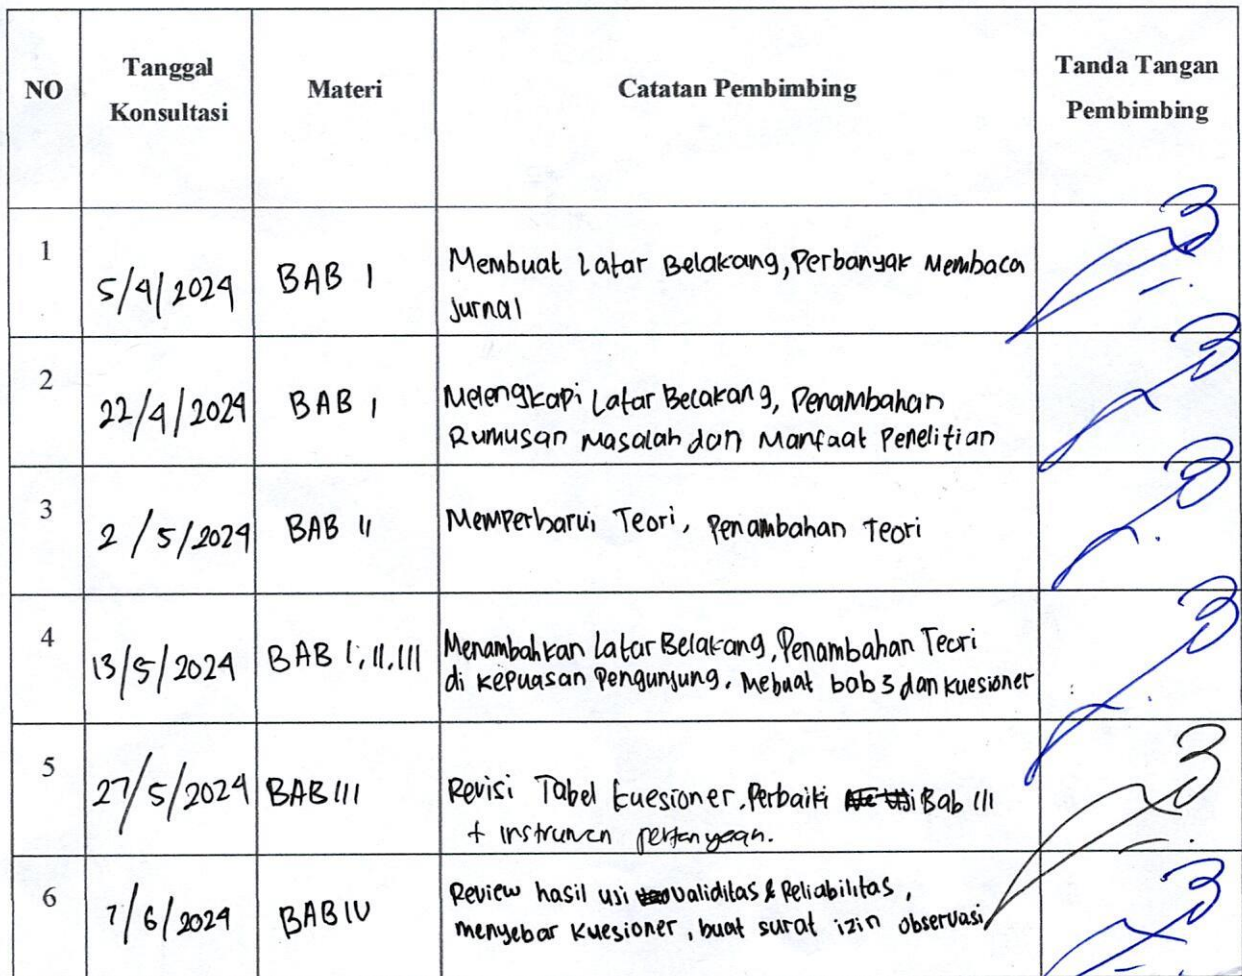 NO
Tanggal
Konsultasi
Materi
Catatan Pembimbing
Tanda Tangan
Pembimbing
1
5/4/2024
BAB I
Membuat Latar Belakang, Perbanyak Membaca
Jurnal
2
22/4/2024
BAB I
Melengkapi Latar Belakang, Penambahan
Rumusan Masalah dan Manfaat Penelitian
3
2/5/2024
BAB II
Memperbarui Teori, Penambahan Teori
4
13/5/2024
BAB I, II, III
Menambahkan Latar Belakang, Penambahan Teori
di Kepuasan Pengunjung, Mebuat bab 3 dan kuesioner
5
27/5/2024
BAB III
Revisi Tabel Kuesioner, Perbaiki Bab III
+ instrumen pertanyaan.
6
7/6/2024
BAB IV
Review hasil uji validitas & Reliabilitas,
menyebar kuesioner, buat surat izin observasi